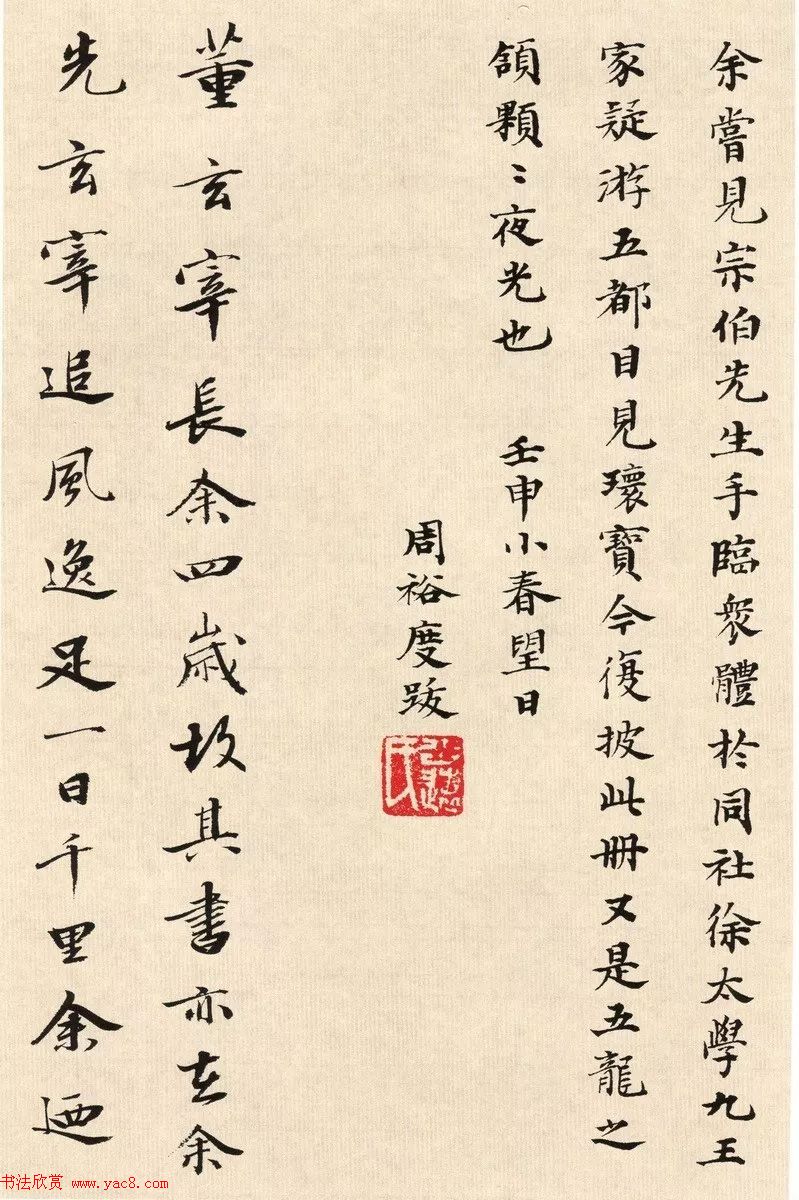 余嘗見宗伯先生手臨衆體於同社徐太學九王
家疑游五都目見瓌寶今復披此冊又是五龍之
頷顆〻夜光也 壬申小春望日
周裕度跋
董玄宰長余四歲故其書亦在余
先玄宰追風逸足一日千里余迺
书法欣赏 www.yac8.com